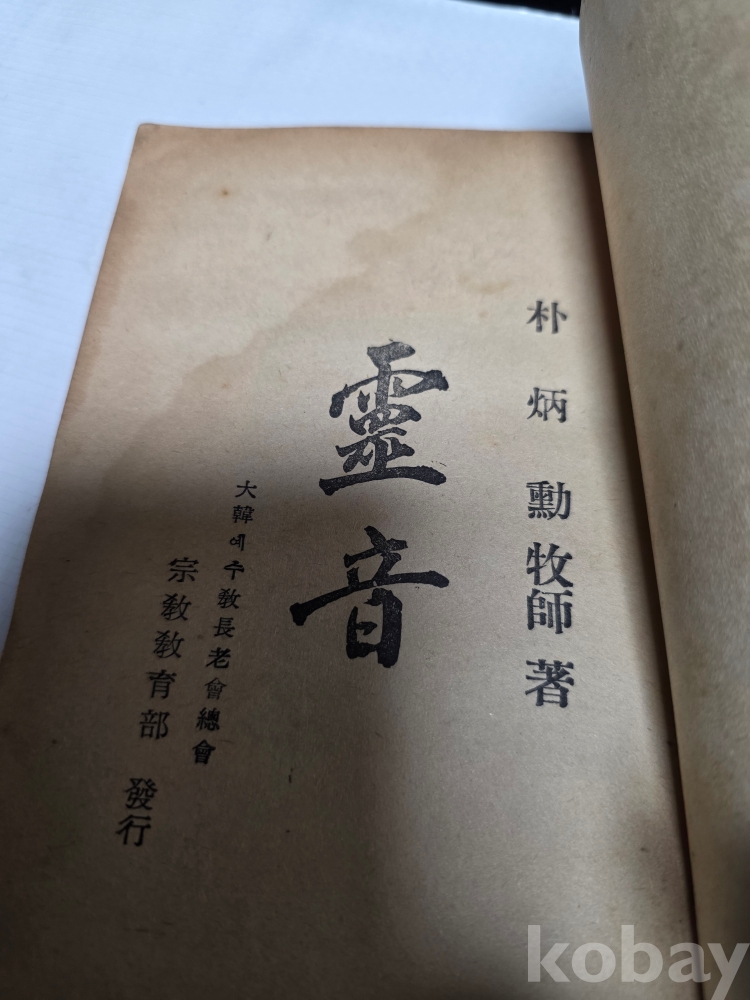 朴炳勳牧師 著
靈音
大韓예수敎長老會總會
宗敎敎育部 發行
kobay